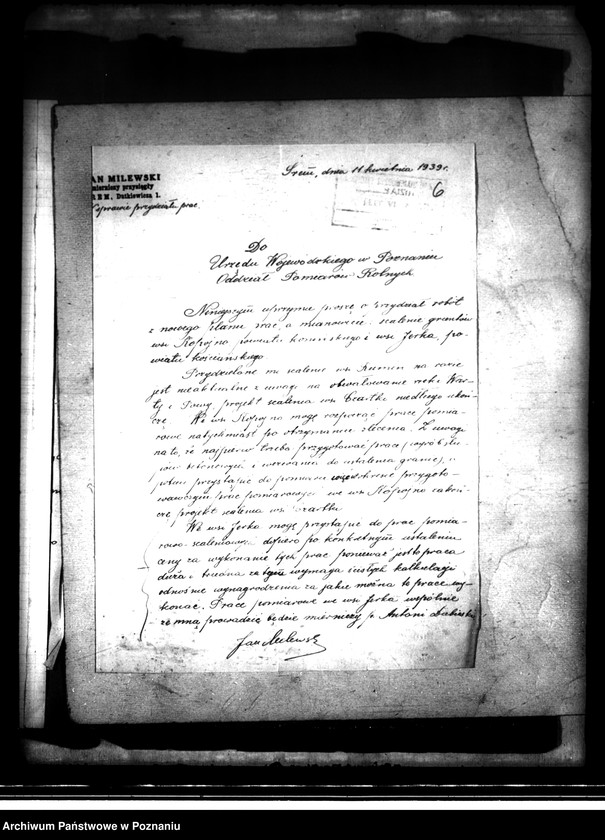 AN MILEWSKI
mierniczy przysięgły
REM, Dutkiewicza 1.
W sprawie przydziału prac.
Śrem, dnia 11 kwietnia 1939 r.
6
Do
Urzędu Wojewódzkiego w Poznaniu
Oddział Pomiarów Rolnych
Niniejszym uprzejmie proszę o przydział robót
z nowego planu prac, a mianowicie: scalenie gruntów
wsi Kopojno powiatu konińskiego i wsi Jerka, po-
wiatu kościańskiego.
Przydzielone mi scalenie wsi Rumin na razie
jest nieaktualne z uwagi na obwałowanie rzeki War-
ty i Powy, projekt scalenia wsi Czartki niedługo ukoń-
czę. We wsi Kopojno mogę rozpocząć prace pomia-
rowe natychmiast po otrzymaniu zlecenia. Z uwagi
na to, że najpierw trzeba przygotować prace (wyrób słu-
pów betonowych i wezwania do ustalenia granic), a
potem przystąpić do pomiaru, w czasie przygoto-
wawczym prac pomiarowych we wsi Kopojno zakoń-
czę projekt scalenia wsi Czartki.
We wsi Jerka mogę przystąpić do prac pomia-
rowo-scaleniowych dopiero po konkretnym ustaleniu
ceny za wykonanie tych prac ponieważ jest to praca
duża i trudna za tym wymaga ścisłych kalkulacji
odnośnie wynagrodzenia za jakie można tę pracę wy-
konać. Prace pomiarowe we wsi Jerka wspólnie
ze mną prowadzić będzie mierniczy p. Antoni
Jan Milewski
Archiwum Państwowe w Poznaniu